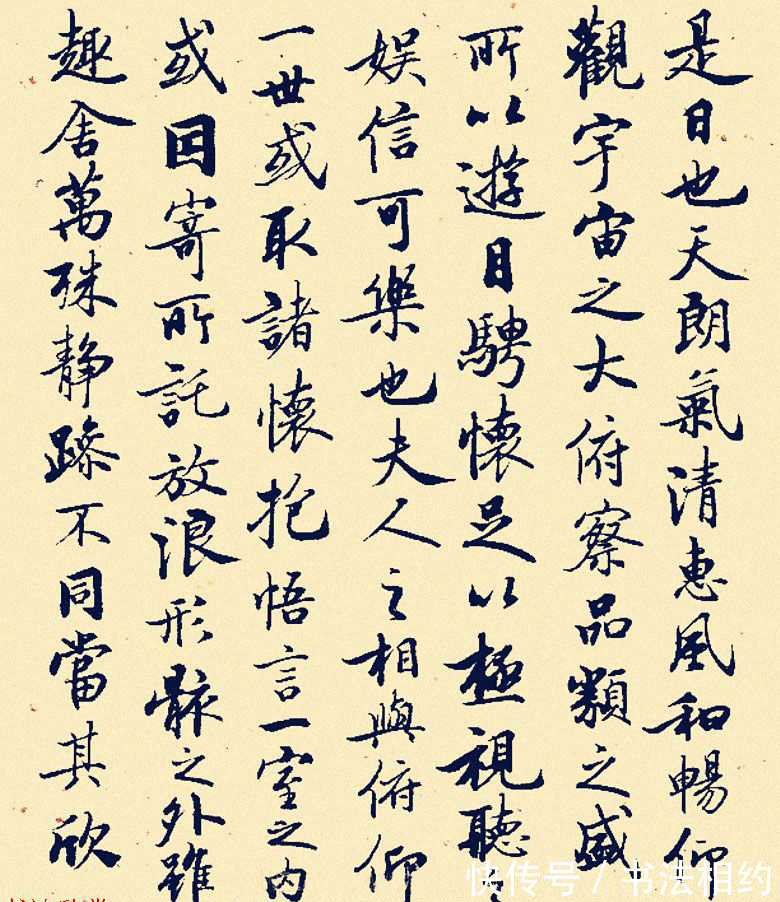 是日也天朗氣清惠風和暢仰
觀宇宙之大俯察品類之盛
所以遊目騁懷足以極視聽之
娛信可樂也夫人之相與俯仰
一世或取諸懷抱悟言一室之內
或因寄所託放浪形骸之外雖
趣舍萬殊静躁不同當其欣
快传号 / 书法相约